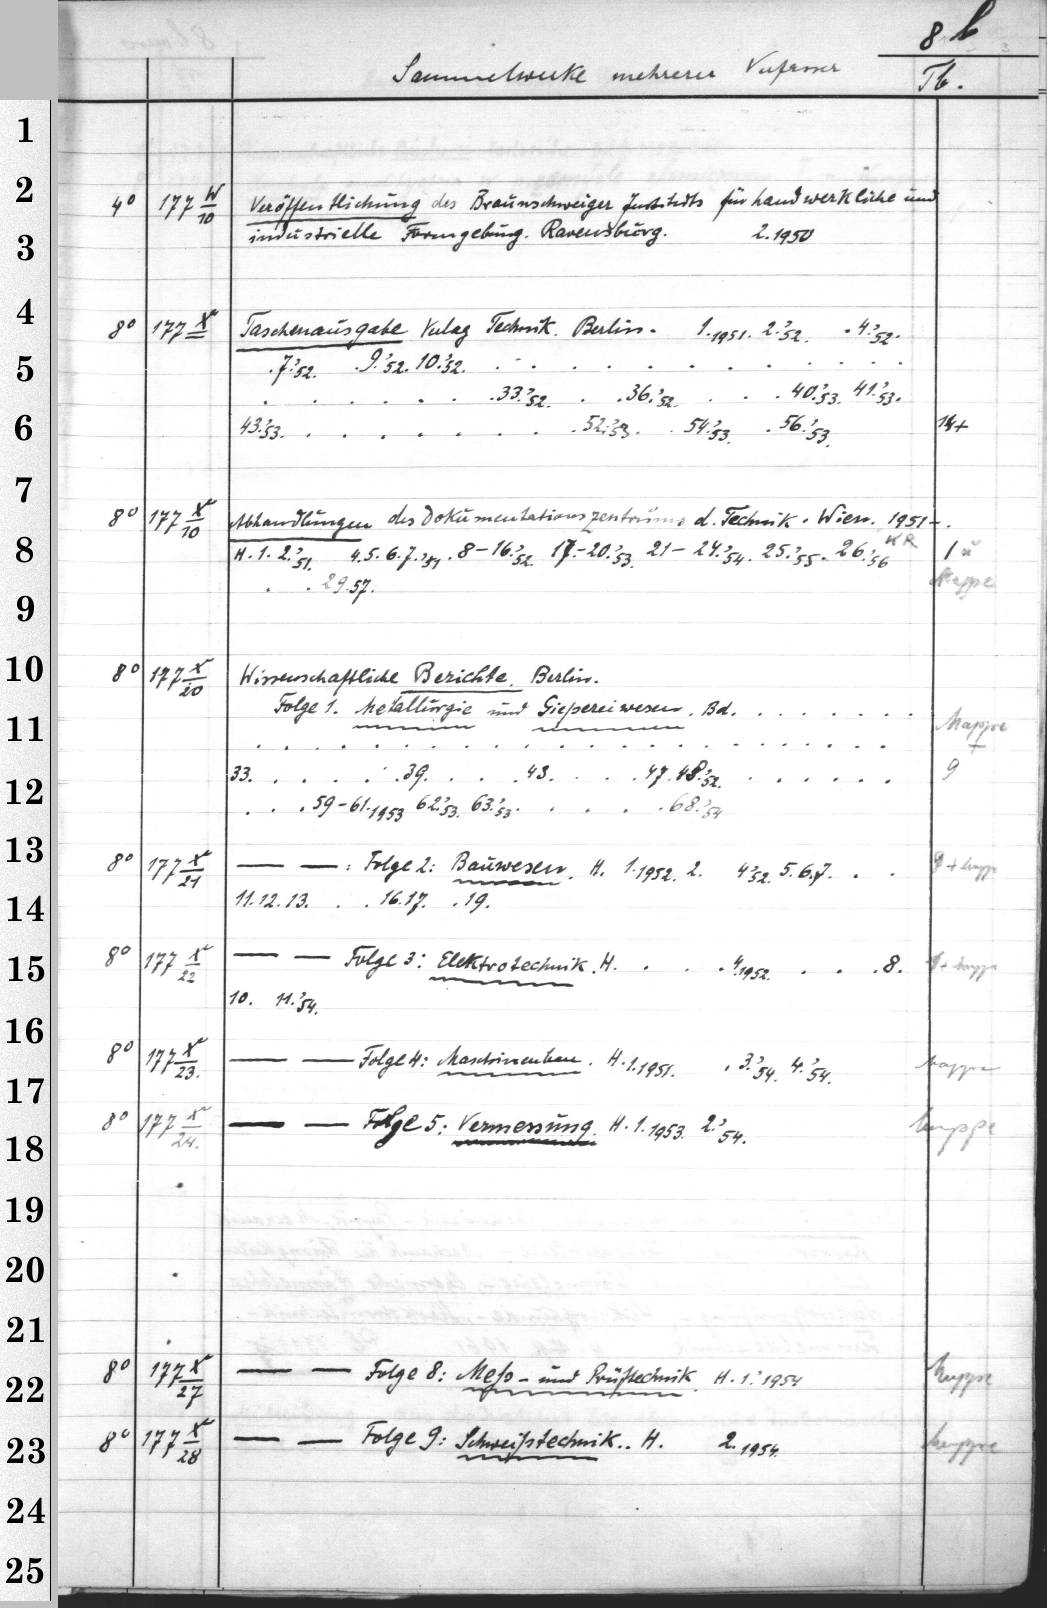 8 b
Sammelwerke mehrerer Verfasser Tb.
1
2
4° 177 W/10 Veröffentlichung des Braunschweiger Instituts für handwerkliche und
industrielle Formgebung. Ravensburg. 2.1950
3
4
8° 177 X Taschenausgabe Verlag Technik. Berlin. 1.1951. 2.'52. . 4.'52.
5
.7.'52. .9.'52. 10.'52. . . . . . . . . . .
. . . . . . . .33.'52. . .36.'52. . . .40.'53. 41.'53.
6
43.'53. . . . . . . . .52.'53. . 54.'53. .56.'53.
7
8° 177 X/10 Abhandlungen des Dokumentationszentrums d. Technik. Wien. 1951-.
8
H. 1. 2.'51. 4.5.6.7.'51. 8-16.'52. 17.-20.'53. 21-24.'54. 25.'55. 26.'56 KR 1 u
. . 29.57. Mappe
9
10
8° 177 X/20 Wissenschaftliche Berichte. Berlin.
Folge 1. Metallurgie und Gießereiwesen. Bd. . . . . . . . Mappe
11
. . . . . . . . . . . . . . . . . . . . . . +
33. . . . . .39. . . .43. . . .47. 48.'52. . . . . . . 9
12
. . .59-61.1953 62.'53. 63.'53. . . . . .68.'54
13
8° 177 X/21 — — : Folge 2: Bauwesen. H. 1.1952. 2. 4.'52. 5.6.7. . . 9 + Mappe
14
11.12.13. . . 16.17. .19.
15
8° 177 X/22 — — Folge 3: Elektrotechnik. H. . . . .4.1952. . . .8. + Mappe
10. 11.'54.
16
8° 177 X/23. — — Folge 4: Maschinenbau. H.1.1951. . 3.'54. 4.'54. Mappe
17
8° 177 X/24. — — Folge 5: Vermessung. H.1.1953. 2.'54. Mappe
18
19
20
21
22
8° 177 X/27 — — Folge 8: Meß- und Prüftechnik. H.1.'1954 Mappe
23
8° 177 X/28 — — Folge 9: Schweißtechnik.. H. 2.1954. Mappe
24
25